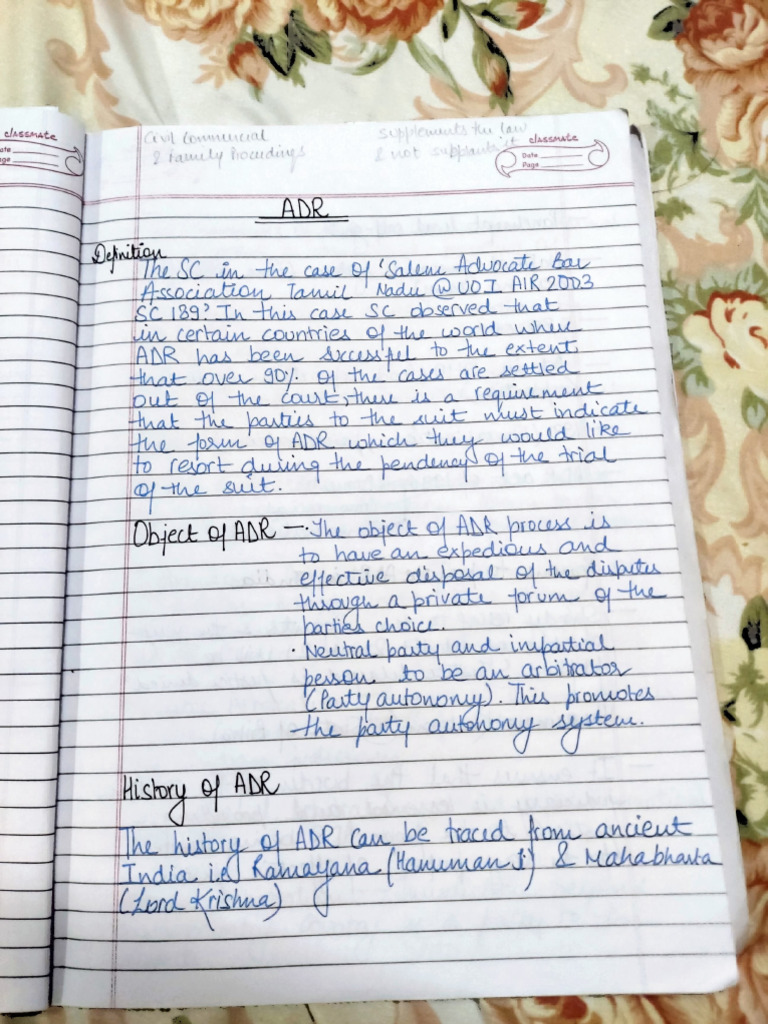 classmate
ate
age
Civil Commercial
& Family Proceedings
supplements the law
& not supplants it
classmate
Date
Page
ADR
Definition
The SC in the case of 'Salem Advocate Bar
Association Tamil Nadu @ UOI AIR 2003
SC 189? In this case SC observed that
in certain countries of the world where
ADR has been successfel to the extent
that over 90% of the cases are settled
out of the court, there is a requirement
that the parties to the suit must indicate
the form of ADR which they would like
to resort during the pendency of the trial
of the suit.
Object of ADR — · The object of ADR process is
to have an expedious and
effective disposal of the disputes
through a private forum of the
parties choice.
· Neutral party and impartial
person to be an arbitrator
(Party autonony). This promotes
the party autonony system.
History of ADR
The history of ADR can be traced from ancient
India i.e Ramayana (Hanuman Ji) & Mahabharta
(Lord Krishna)